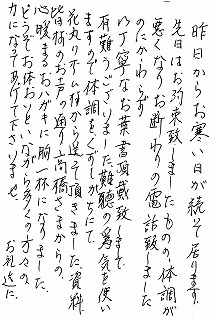 昨日からお寒い日が続いて居ります。
先日はお約束致しましたものの、体調が
悪くなりお断わりの電話致しました
のにかかわらず
ご丁寧なお葉書頂戴致しまして
有難うございました難聴の為気を使い
ますので体調をくずしがちにて
花丸りホーム様から送って頂きました資料、
皆様のお声の通り高橋さまからの、
心暖まるおハガキに胸一杯になりました、
どうぞお体おといながら多くの方々の、
力になってあげて下さいませ。
お礼迄に、